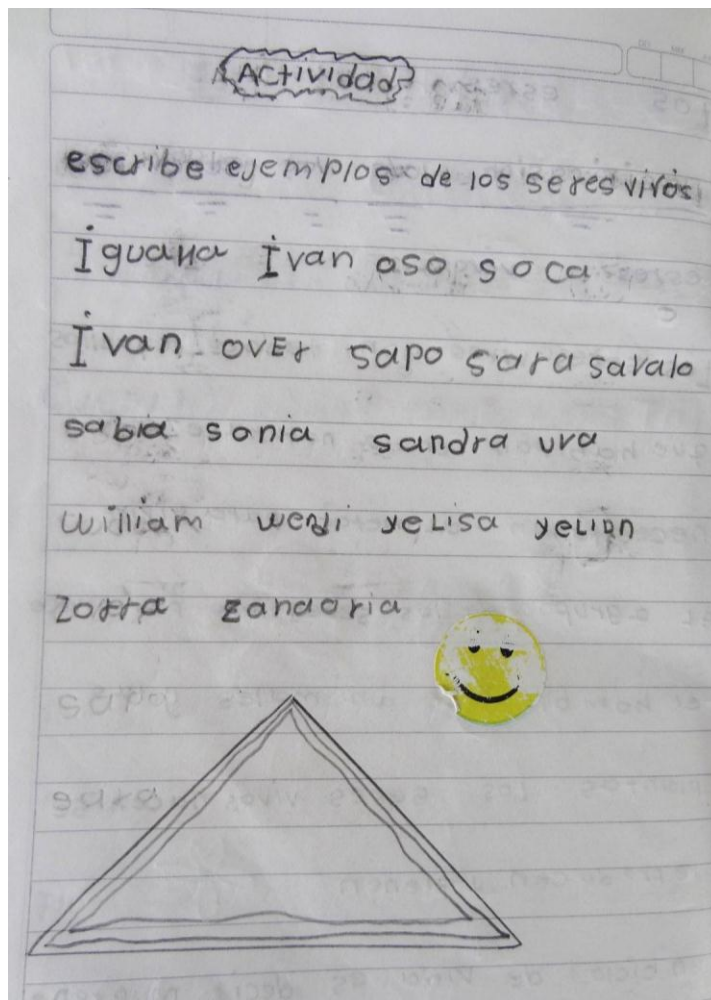 Actividad
escribe ejemplos de los seres vivos
Iguana Ivan oso soca
Ivan over sapo sara savalo
sabia sonia sandra uva
william wendi yelisa yelian
zorra zanaoria